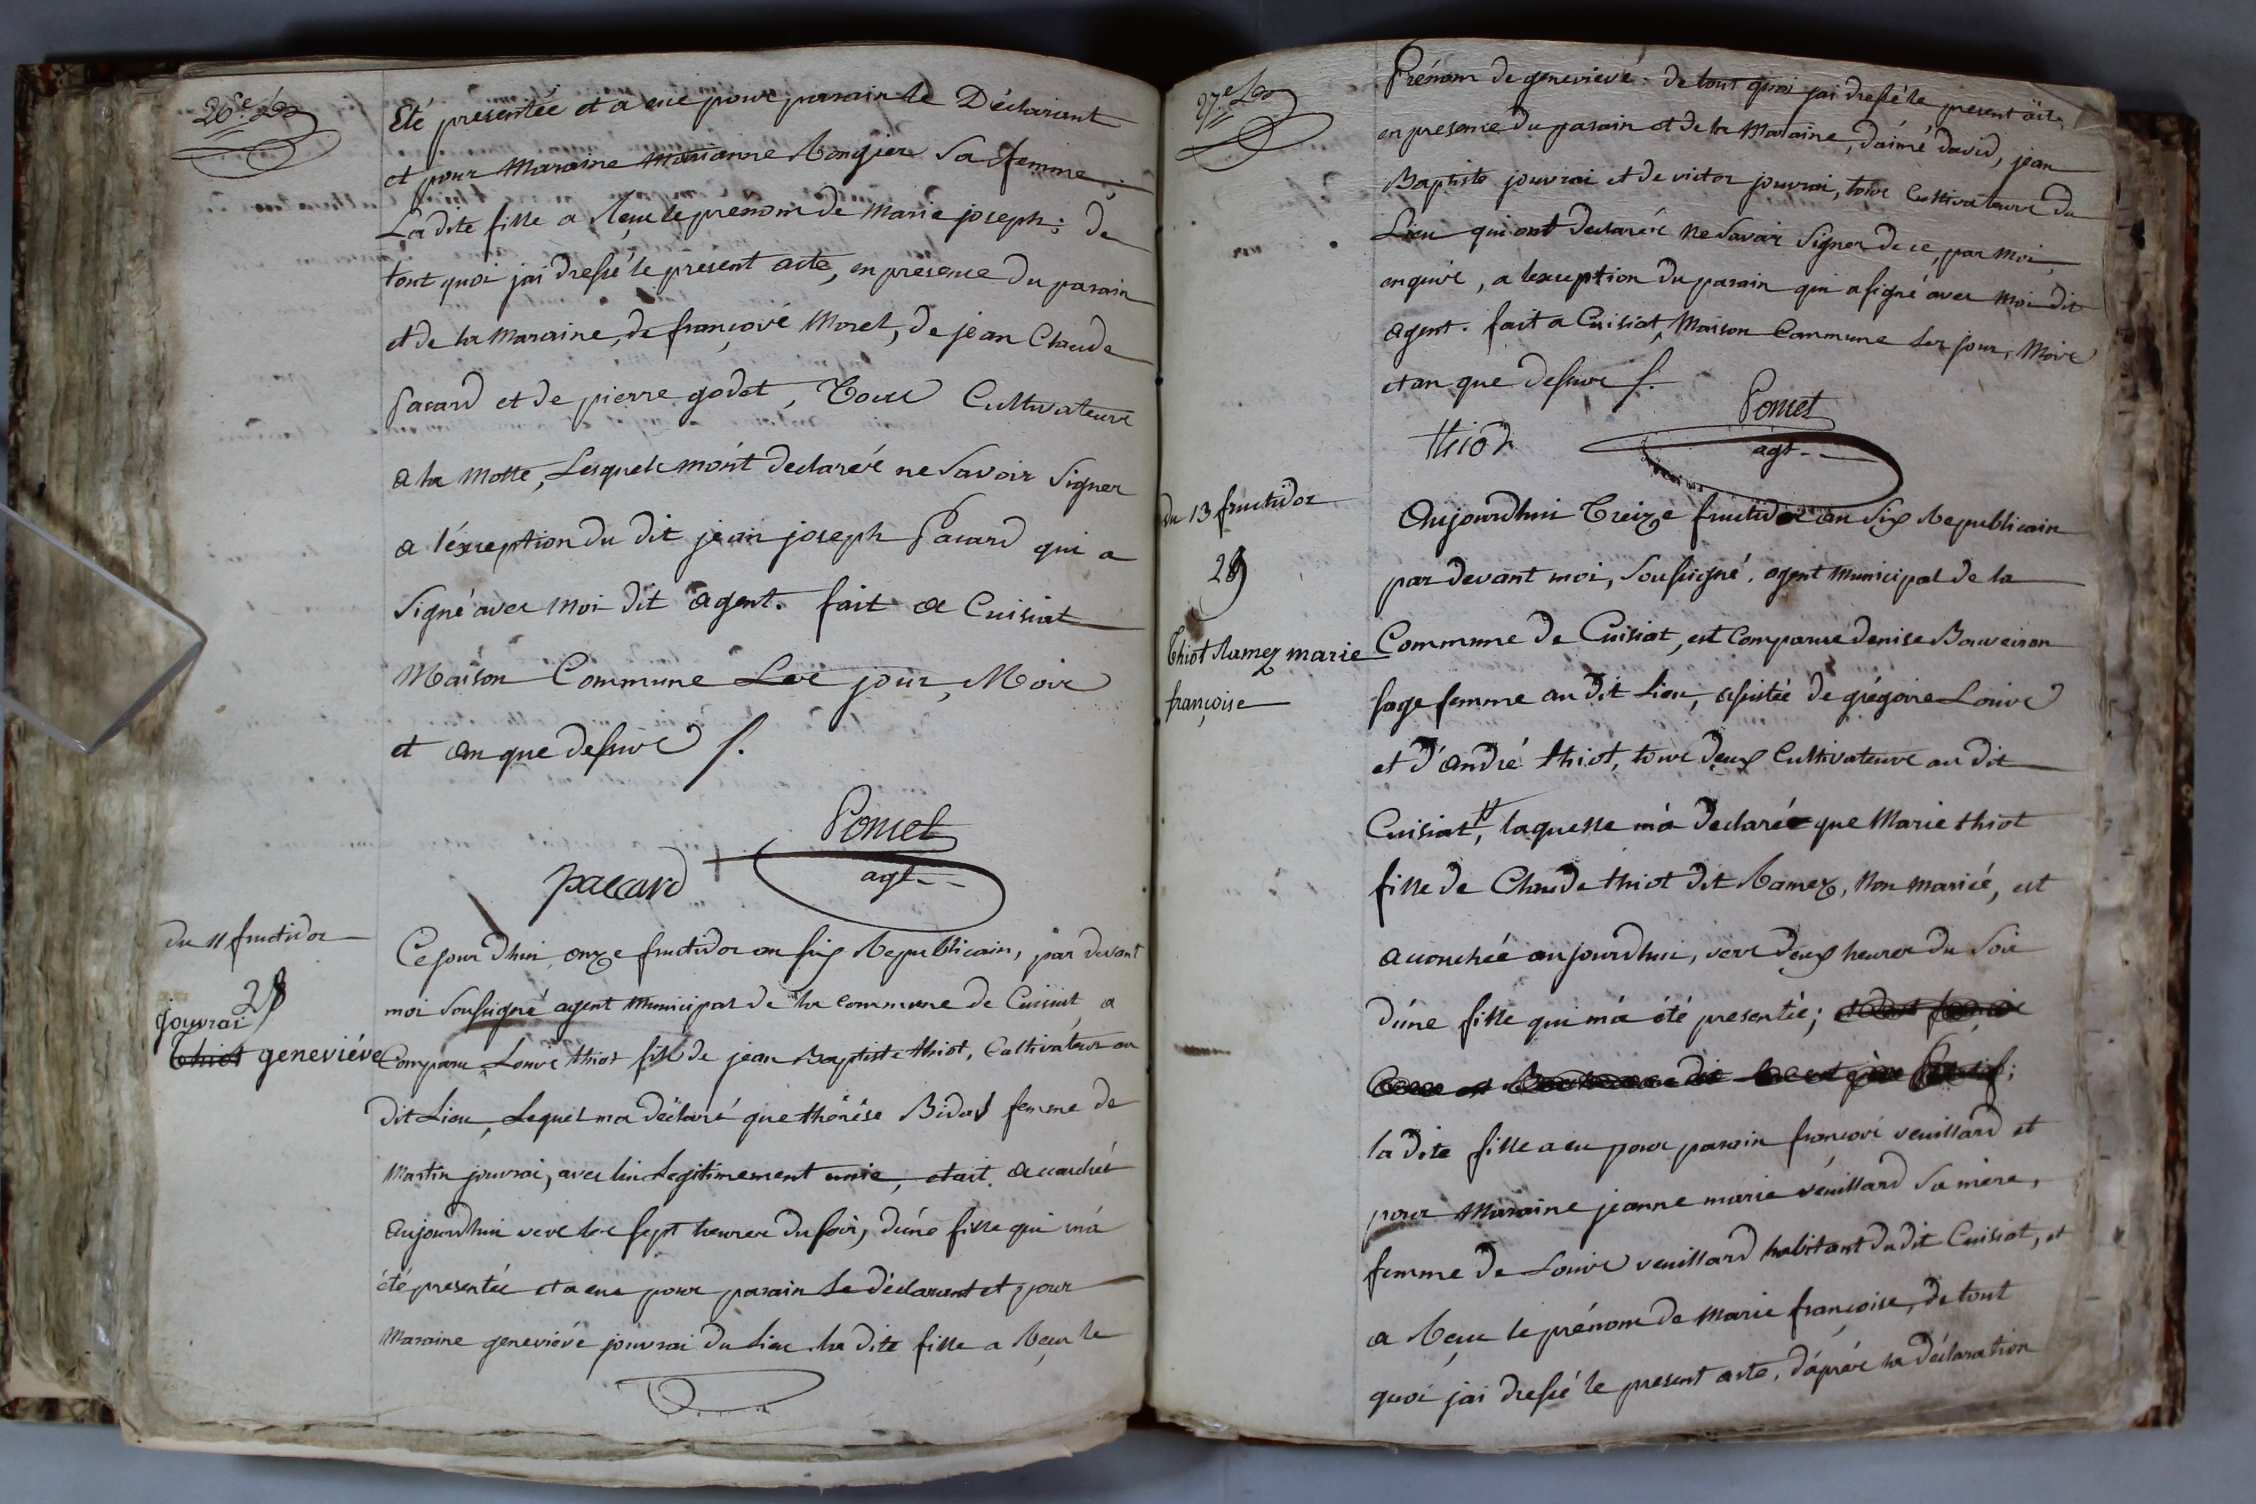 26.e
Eté presentée et a eue pour parain le Déclarant
et pour Maraine Marianne Rongier Sa femme;
La dite fille a Reçue le prenom de marie joseph; de
tout quoi jai dressé le present acte, en presence du parain
et de la Maraine, de françois Morel, de jean Claude
pacard et de pierre godet, Tous Cultivateurs
a la Motte, Lesquels mont declarés ne Savoir Signer
a l'éxception du dit jean joseph Pacard qui a
Signé avec Moi dit agent. fait a Cuisiat
Maison Commune Les jour, Mois
et an que dessus /.
Poncet
agt
paccard
du 11 fructidor
28
jouvrai
Thiot geneviéve
Cejourdhui onze fructidor an six Republicain, par devant
moi Soussigné agent Municipal de la Commune de Cuisiat, a
Comparu Louis thiot fils de jean Baptiste thiot, Cultivateur au
dit Lieu, Lequel ma déclaré que thérése Bidal femme de
Martin jouvrai, avec lui Legitimement unie, etait accouchée
aujourdhui vers les sept heures du soir, d'une fille qui m'a
été presentée et a eue pour parain Le déclarant et pour
Maraine geneviéve jouvrai du Lieu. La dite fille a Reçu le
27.e
Prénom de genevieve. de tout quoi jai dressé le present acte,
en presence du parain et de la Maraine, d'aimé david, jean
Baptiste jouvrai et de victor jouvrai, tous Cultivateurs du
Lieu qui ont declarés ne Savoir Signer de ce, par Moi
enquis, a lexception du parain qui a signé avec Moi dit
agent. fait a Cuisiat, Maison Commune Les jour, Mois
et an que dessus /.
Poncet
agt
thiot
du 13 fructidor
29
Thiot Ramez marie
françoise
Aujourdhui Treize fructidor an Six Republicain
par devant moi, Soussigné, agent Municipal de la
Commune de Cuisiat, est Comparue denise Bouveiron
sage femme au dit Lieu, assistée de grégoire Louis
et d'andré thiot, tous deux Cultivateurs au dit
Cuisiat, laquelle m'a declarée que Marie thiot
fille de Claude thiot dit Ramez, Non mariée, est
accouchée aujourdhui, vers deux heures du Soir
d'une fille qui m'a été presentée;
la dite fille a eu pour parain françois veuillard et
pour Maraine jeanne marie veuillard Sa mére,
femme de Louis veuillard habitant du dit Cuisiat, et
a Reçu le prénom de Marie françoise, de tout
quoi jai dressé le present acte, d'aprés la déclaration